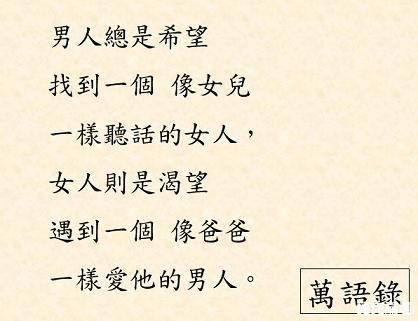 男人總是希望
找到一個 像女兒
一樣聽話的女人，
女人則是渴望
遇到一個 像爸爸
一樣愛他的男人。
萬語錄